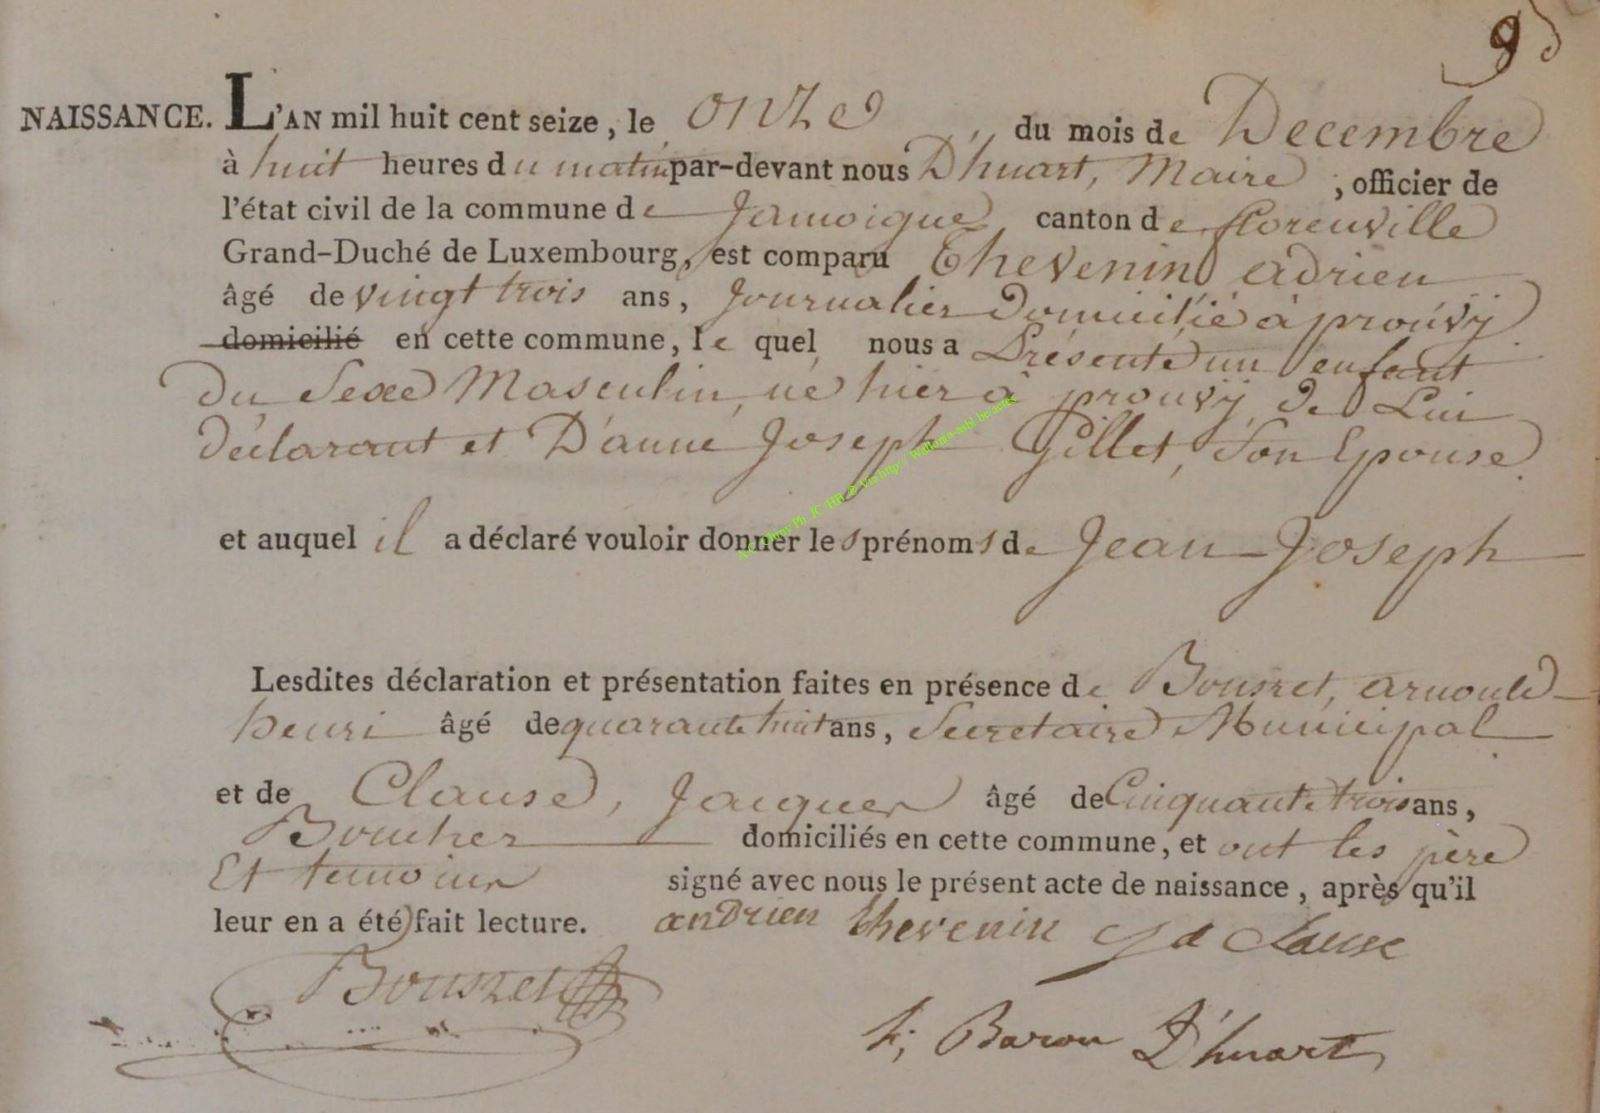 9
NAISSANCE. L'AN mil huit cent seize, le onze du mois de Decembre
à huit heures du matin par-devant nous D'huart, Maire, officier de
l'état civil de la commune de Jamoigne canton de florenville
Grand-Duché de Luxembourg, est comparu Thevenin adrien
âgé de vingt trois ans, Journalier Domicilié à prouvÿ
domicilié en cette commune, le quel nous a Présenté un enfant
Du Sexe Masculin, né hier à prouvÿ, De Lui
Déclarant et D'anne Joseph Gillet, Son Epouse
et auquel il a déclaré vouloir donner les prénoms de Jean-Joseph
Lesdites déclaration et présentation faites en présence de arnould
henri âgé de quarante huit ans, Secretaire Municipal
et de Clause, Jacques âgé de Cinquante trois ans,
domiciliés en cette commune, et ont les père
Et temoins signé avec nous le présent acte de naissance, après qu'il
leur en a été fait lecture. anDrien thevenin Clause
h; Baron D'huart